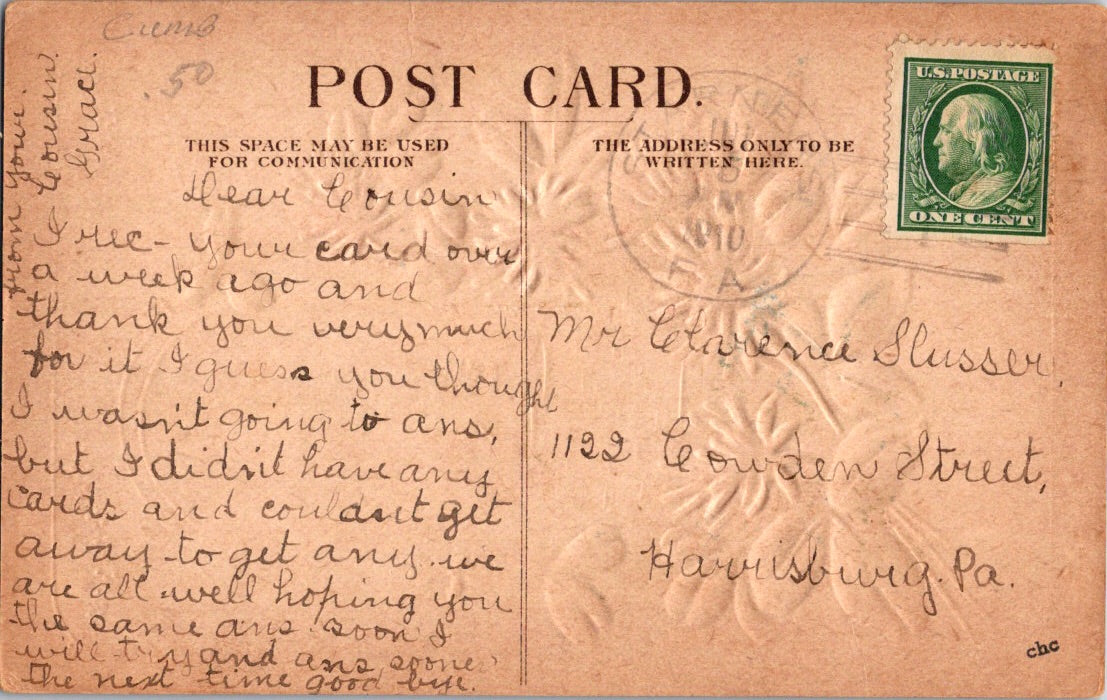 Cumb
.50
POST CARD.
THIS SPACE MAY BE USED
FOR COMMUNICATION
THE ADDRESS ONLY TO BE
WRITTEN HERE.
U.S. POSTAGE
ONE CENT
1910
PA
Dear Cousin
I rec- your card over
a week ago and
thank you very much
for it I guess you thought
I wasn't going to ans,
but I didn't have any
cards and couldnt get
away to get any. we
are all well hoping you
the same ans. soon I
will try and ans sooner
the next time good bye.
from your
Cousin
Grace.
Mr Clarence Slusser,
1122 Cowden Street,
Harrisburg. Pa.
chc